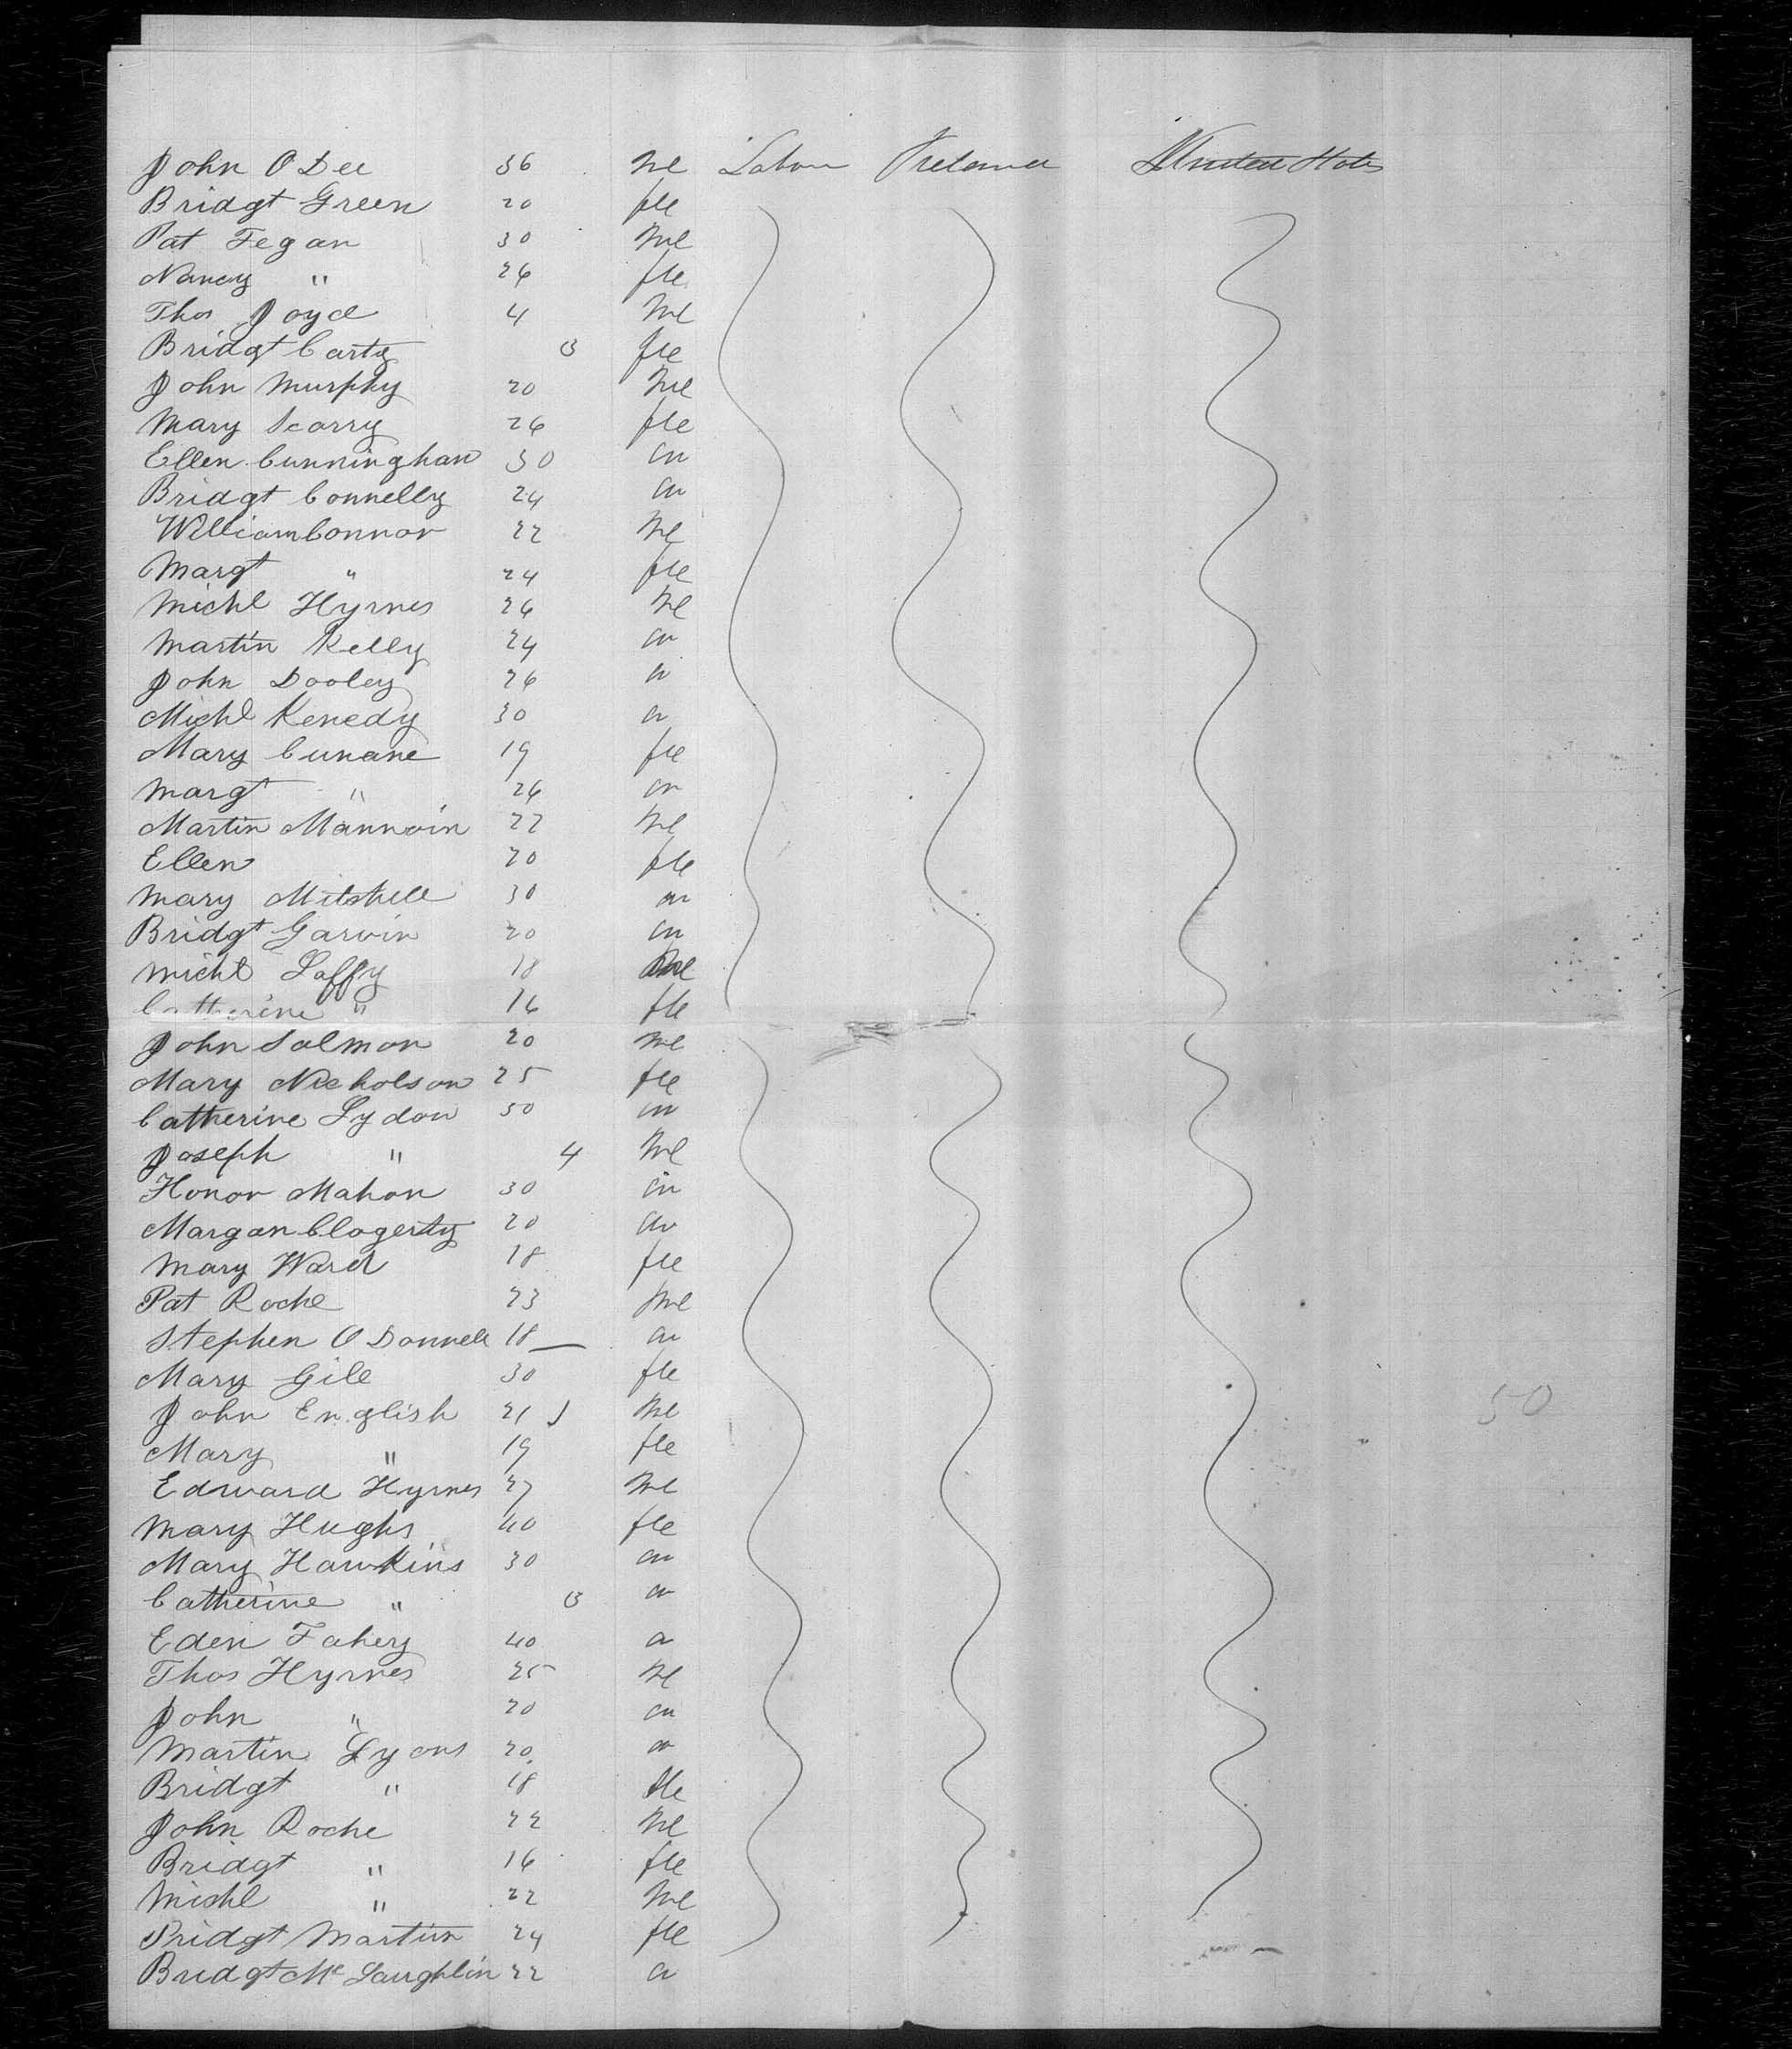 John O Dee 36 Me Labour Ireland United States
Bridgt Green 20 fle
Pat Fegan 30 Me
Nancy " 26 fle
Thos Joyce 4 Me
Bridgt Carty 3 fle
John Murphy 20 Me
Mary Scarry 26 fle
Ellen Cunningham 30 "
Bridgt Connelly 24 "
William Connor 22 Me
Margt " 24 fle
Michl Hyrnes 26 Me
Martin Kelly 24 "
John Dooley 26 "
Michl Kenedy 30 "
Mary Cunane 19 fle
Margt " 26 "
Martin Mannoin 22 Me
Ellen 20 fle
Mary Mitshell 30 "
Bridgt Garvin 20 "
Michl Laffy 18 Me
Catherine " 16 fle
John Salmon 20 Me
Mary Nicholson 25 fle
Catherine Lydon 50 "
Joseph " 4 Me
Honor Mahon 30 "
Margan Clogerty 20 "
Mary Ward 18 fle
Pat Roche 23 Me
Stephen O Donnell 18 "
Mary Gill 30 fle
John English 21 Me 50
Mary " 19 fle
Edward Hyrnes 27 Me
Mary Hughs 40 fle
Mary Hawkins 30 "
Catherine " 3 "
Eden Fahey 40 "
Thos Hyrnes 25 Me
John " 20 "
Martin Lyons 20 "
Bridgt " 18 fle
John Roche 22 Me
Bridgt " 16 fle
Michl " 22 Me
Bridgt Martin 24 fle
Bridgt McLaughlin 22 "